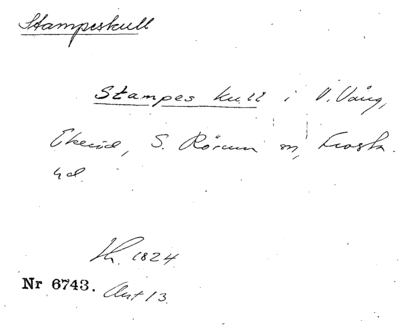 Stampeskull
Stampes kull i V. Vång,
Ekeröd, S. Rörum sn, Frosta
hd.
Sk. 1824
Nr 6743. Ant 13.